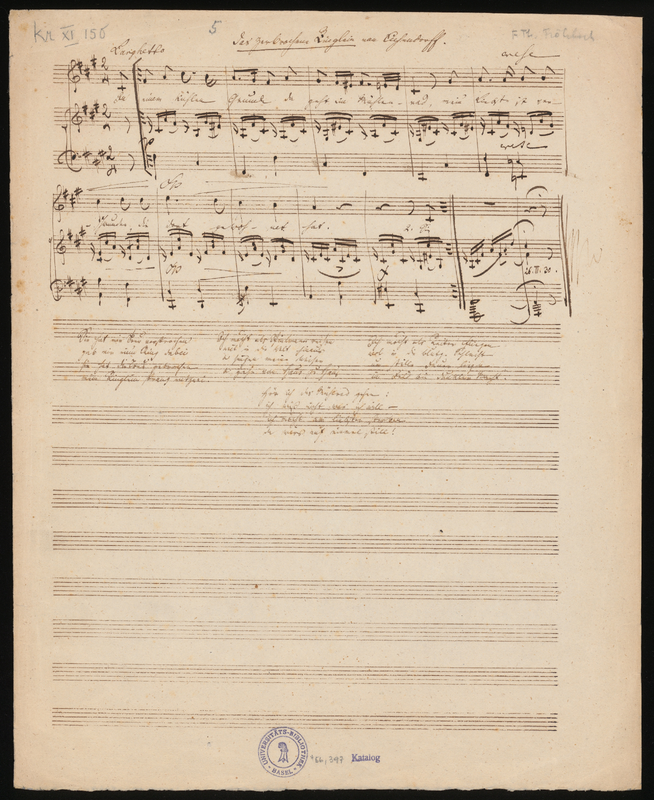 Kr XI 156
5
Das zerbrochene Ringlein von Eichendorff.
F. Th. Fröhlich
Larghetto
cresc
In einem kühlen Grunde da geht ein Mühlen-rad, mein Liebst ist ver-
cresc
schwunden die dort gewoh-net hat.
26. II. 30.
Sie hat mir Treu versprochen
gab mir ein Ring dabei
Sie hat die Treu gebrochen
mein Ringlein sprang entzwei.
Ich möcht als Spielmann reisen
weit in die Welt hinaus
u singen meine Weisen
u gehn von Haus zu Haus
Ich möcht als Reiter fliegen
wohl in die blutge Schlacht
um stille Feuer liegen
im Feld bei dunkler Nacht.
Hör ich das Mühlrad gehn:
ich weiß nicht was ich will –
Ich möcht am liebsten sterben
da wärs auf einmal still!
UNIVERSITÄTS-BIBLIOTHEK
BASEL
Katalog